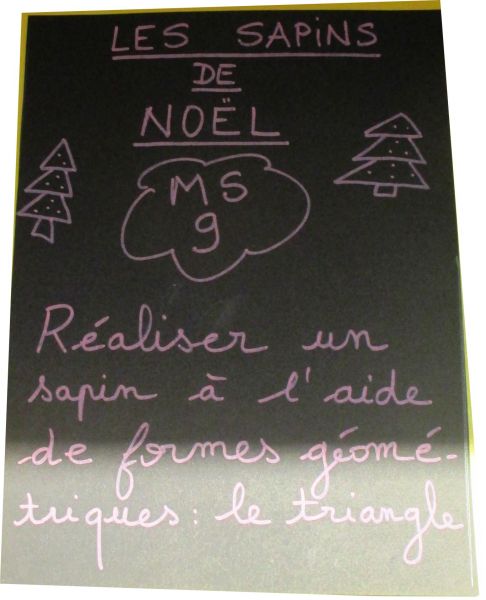 LES SAPiNS
DE
NOËL
MS
g
Réaliser un
sapin à l'aide
de formes géomé-
triques : le triangle